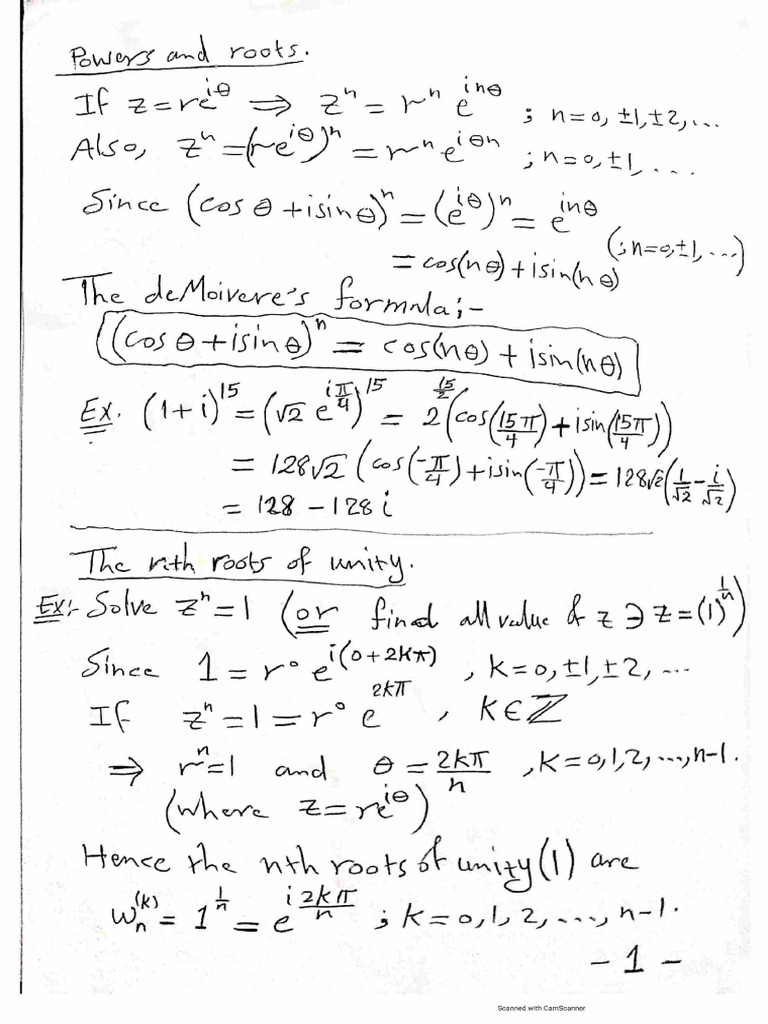 Powers and roots.
If z = re^{iθ} ⟹ z^n = r^n e^{inθ} ; n = 0, ±1, ±2, ...
Also, z^n = (re^{iθ})^n = r^n e^{iθn} ; n = 0, ±1, ...
Since (cos θ + i sin θ)^n = (e^{iθ})^n = e^{inθ}
(; n = 0, ±1, ...)
= cos(nθ) + i sin(nθ)
The deMoivere's formula;-
((cos θ + i sin θ)^n = cos(nθ) + i sin(nθ)
Ex. (1+i)^{15} = (√2 e^{iπ/4})^{15} = 2^{15/2} (cos(15π/4) + i sin(15π/4))
= 128√2 (cos(-π/4) + i sin(-π/4)) = 128√2 (1/√2 - i/√2)
= 128 - 128 i
The nth roots of unity.
Ex:- Solve z^n = 1 (or find all value of z ∋ z = (1)^{1/n})
Since 1 = r° e^{i(0+2kπ)} , k = 0, ±1, ±2, ...
If z^n = 1 = r° e^{2kπ} , k ∈ ℤ
⇒ r^n = 1 and θ = 2kπ/n , k = 0, 1, 2, ..., n-1.
(where z = re^{iθ})
Hence the nth roots of unity (1) are
w_n^{(k)} = 1^{1/n} = e^{i 2kπ/n} ; k = 0, 1, 2, ..., n-1.
- 1 -
Scanned with CamScanner